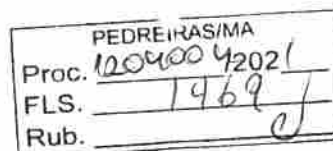 PEDREIRAS/MA
Proc. 1204004/2021
FLS. 1469
Rub.